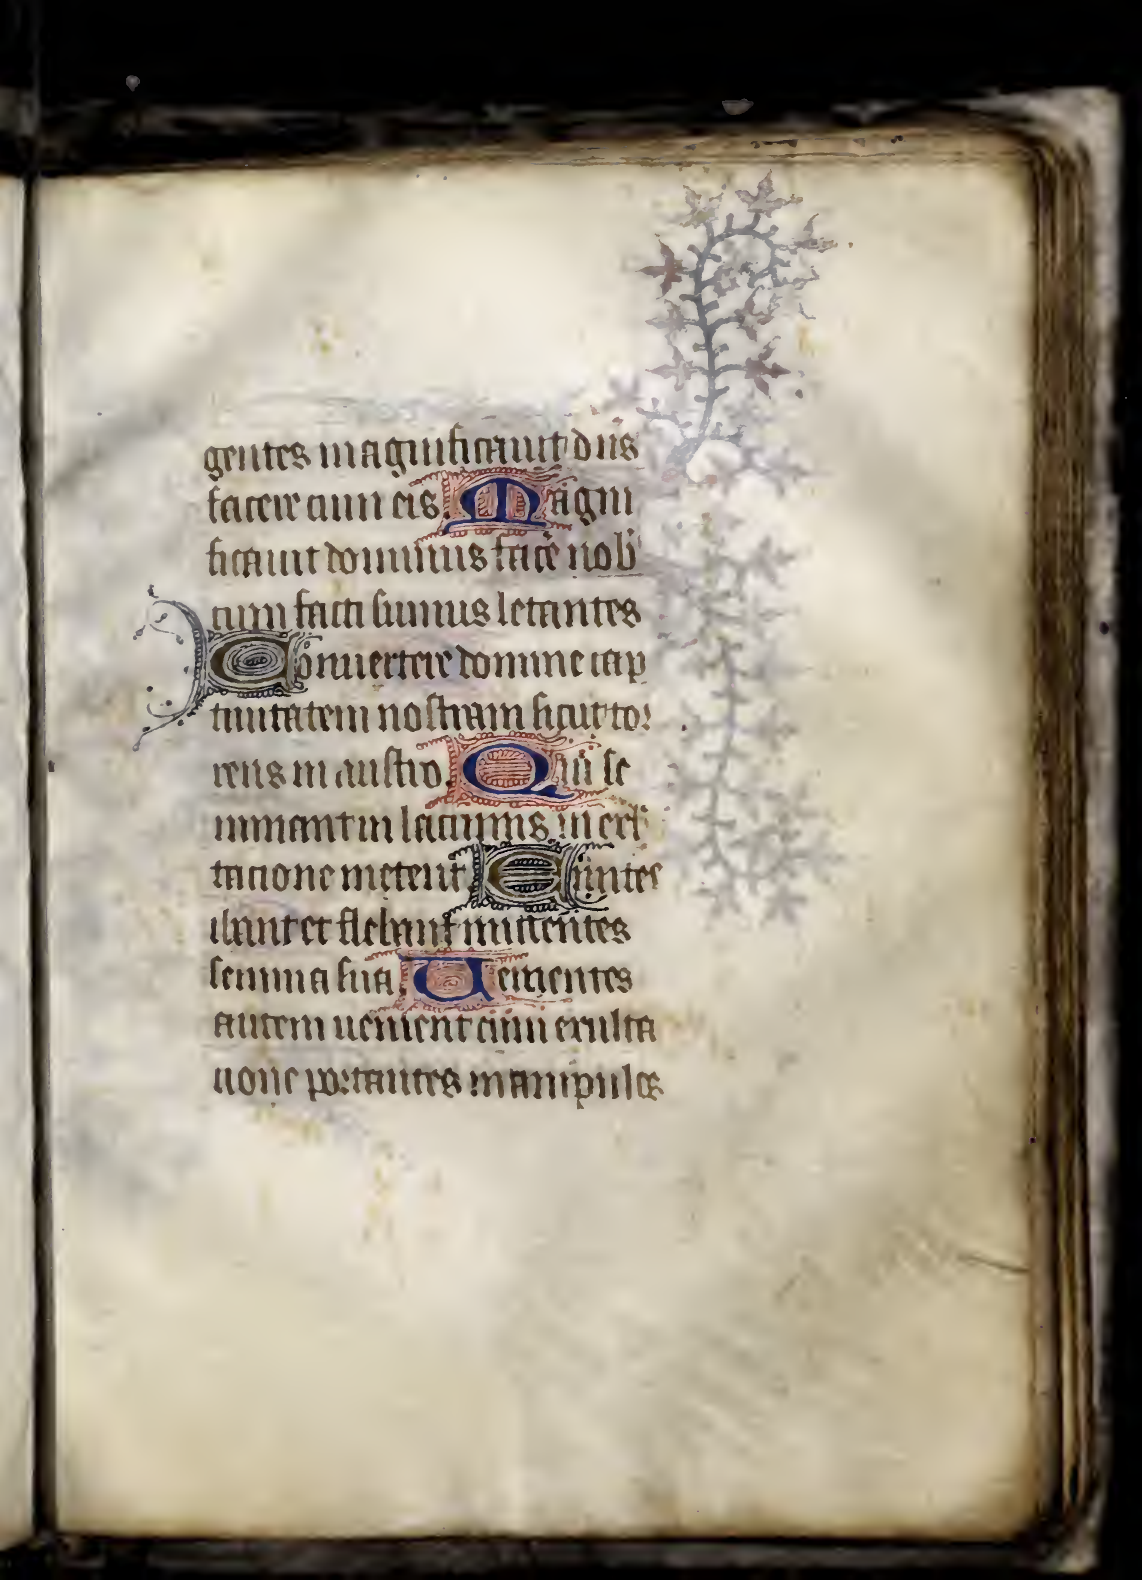 gentes magnificauit dns
facere cum eis. Magni
ficauit dominus face nob
cum facti sumus letantes
Conuertere domine cap
tiuitatem nostram sicut tor
rens in austro. Qui se
minant in lacrimis in exl
tacione metent Euntes
ibant et flebant mittentes
semina sua. Uenientes
autem uenient cum exulta
cione portantes manipulos